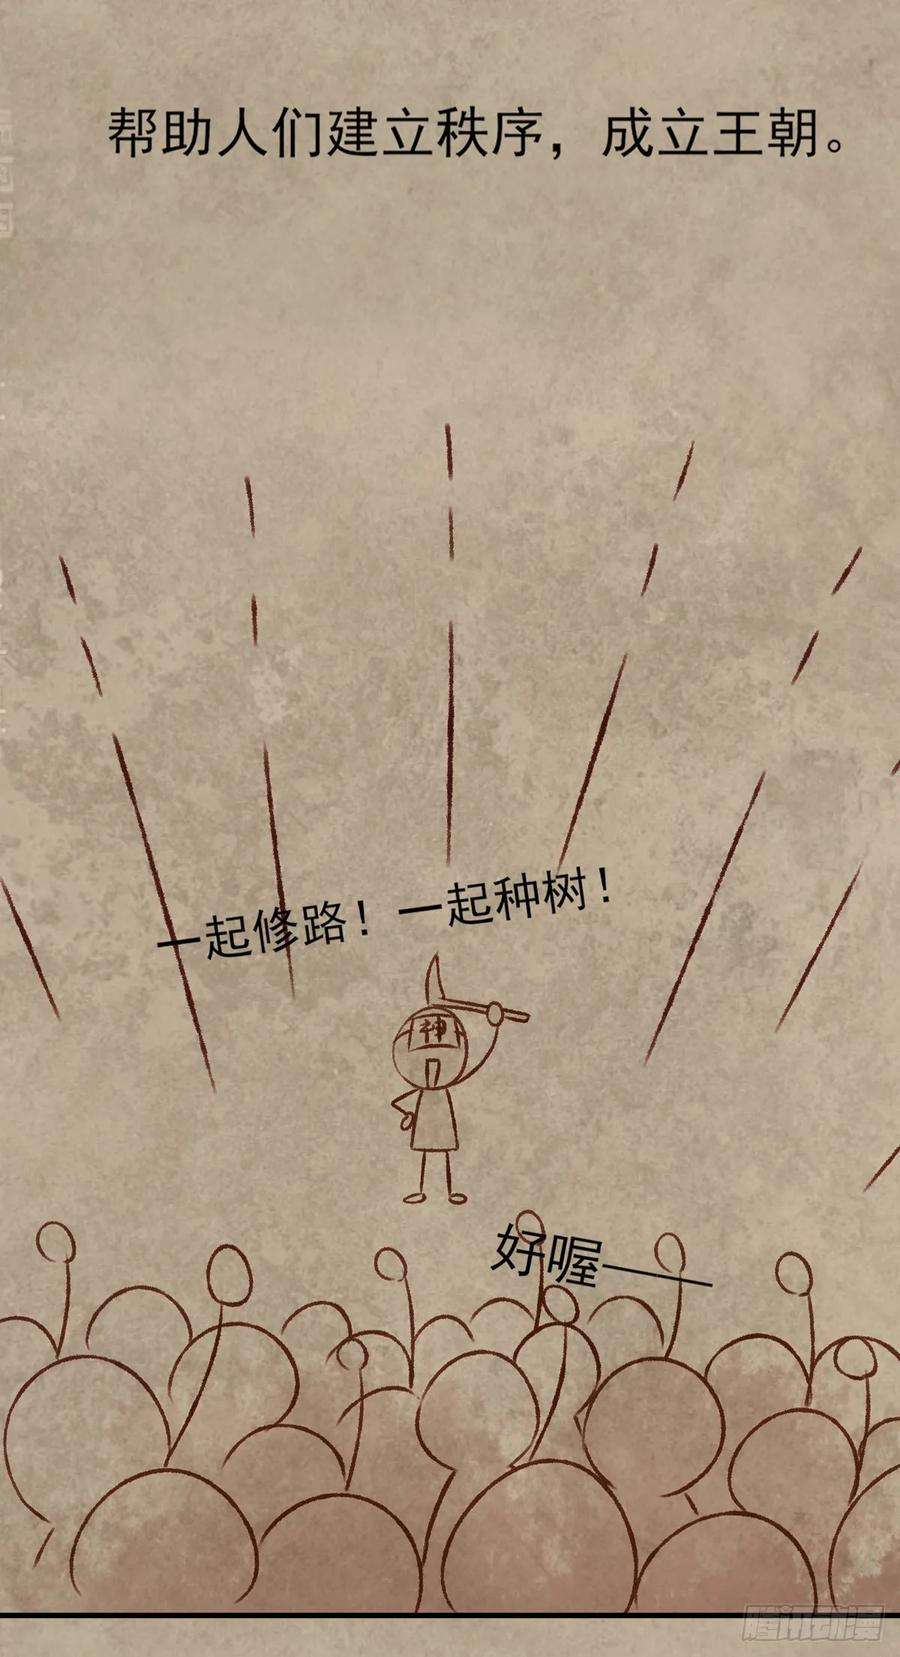 帮助人们建立秩序，成立王朝。
一起修路！一起种树！
神
好喔——
腾讯动漫